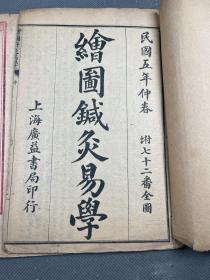 民國五年仲春
坿七十二番全圖
繪圖鍼灸易學
上海廣益書局印行